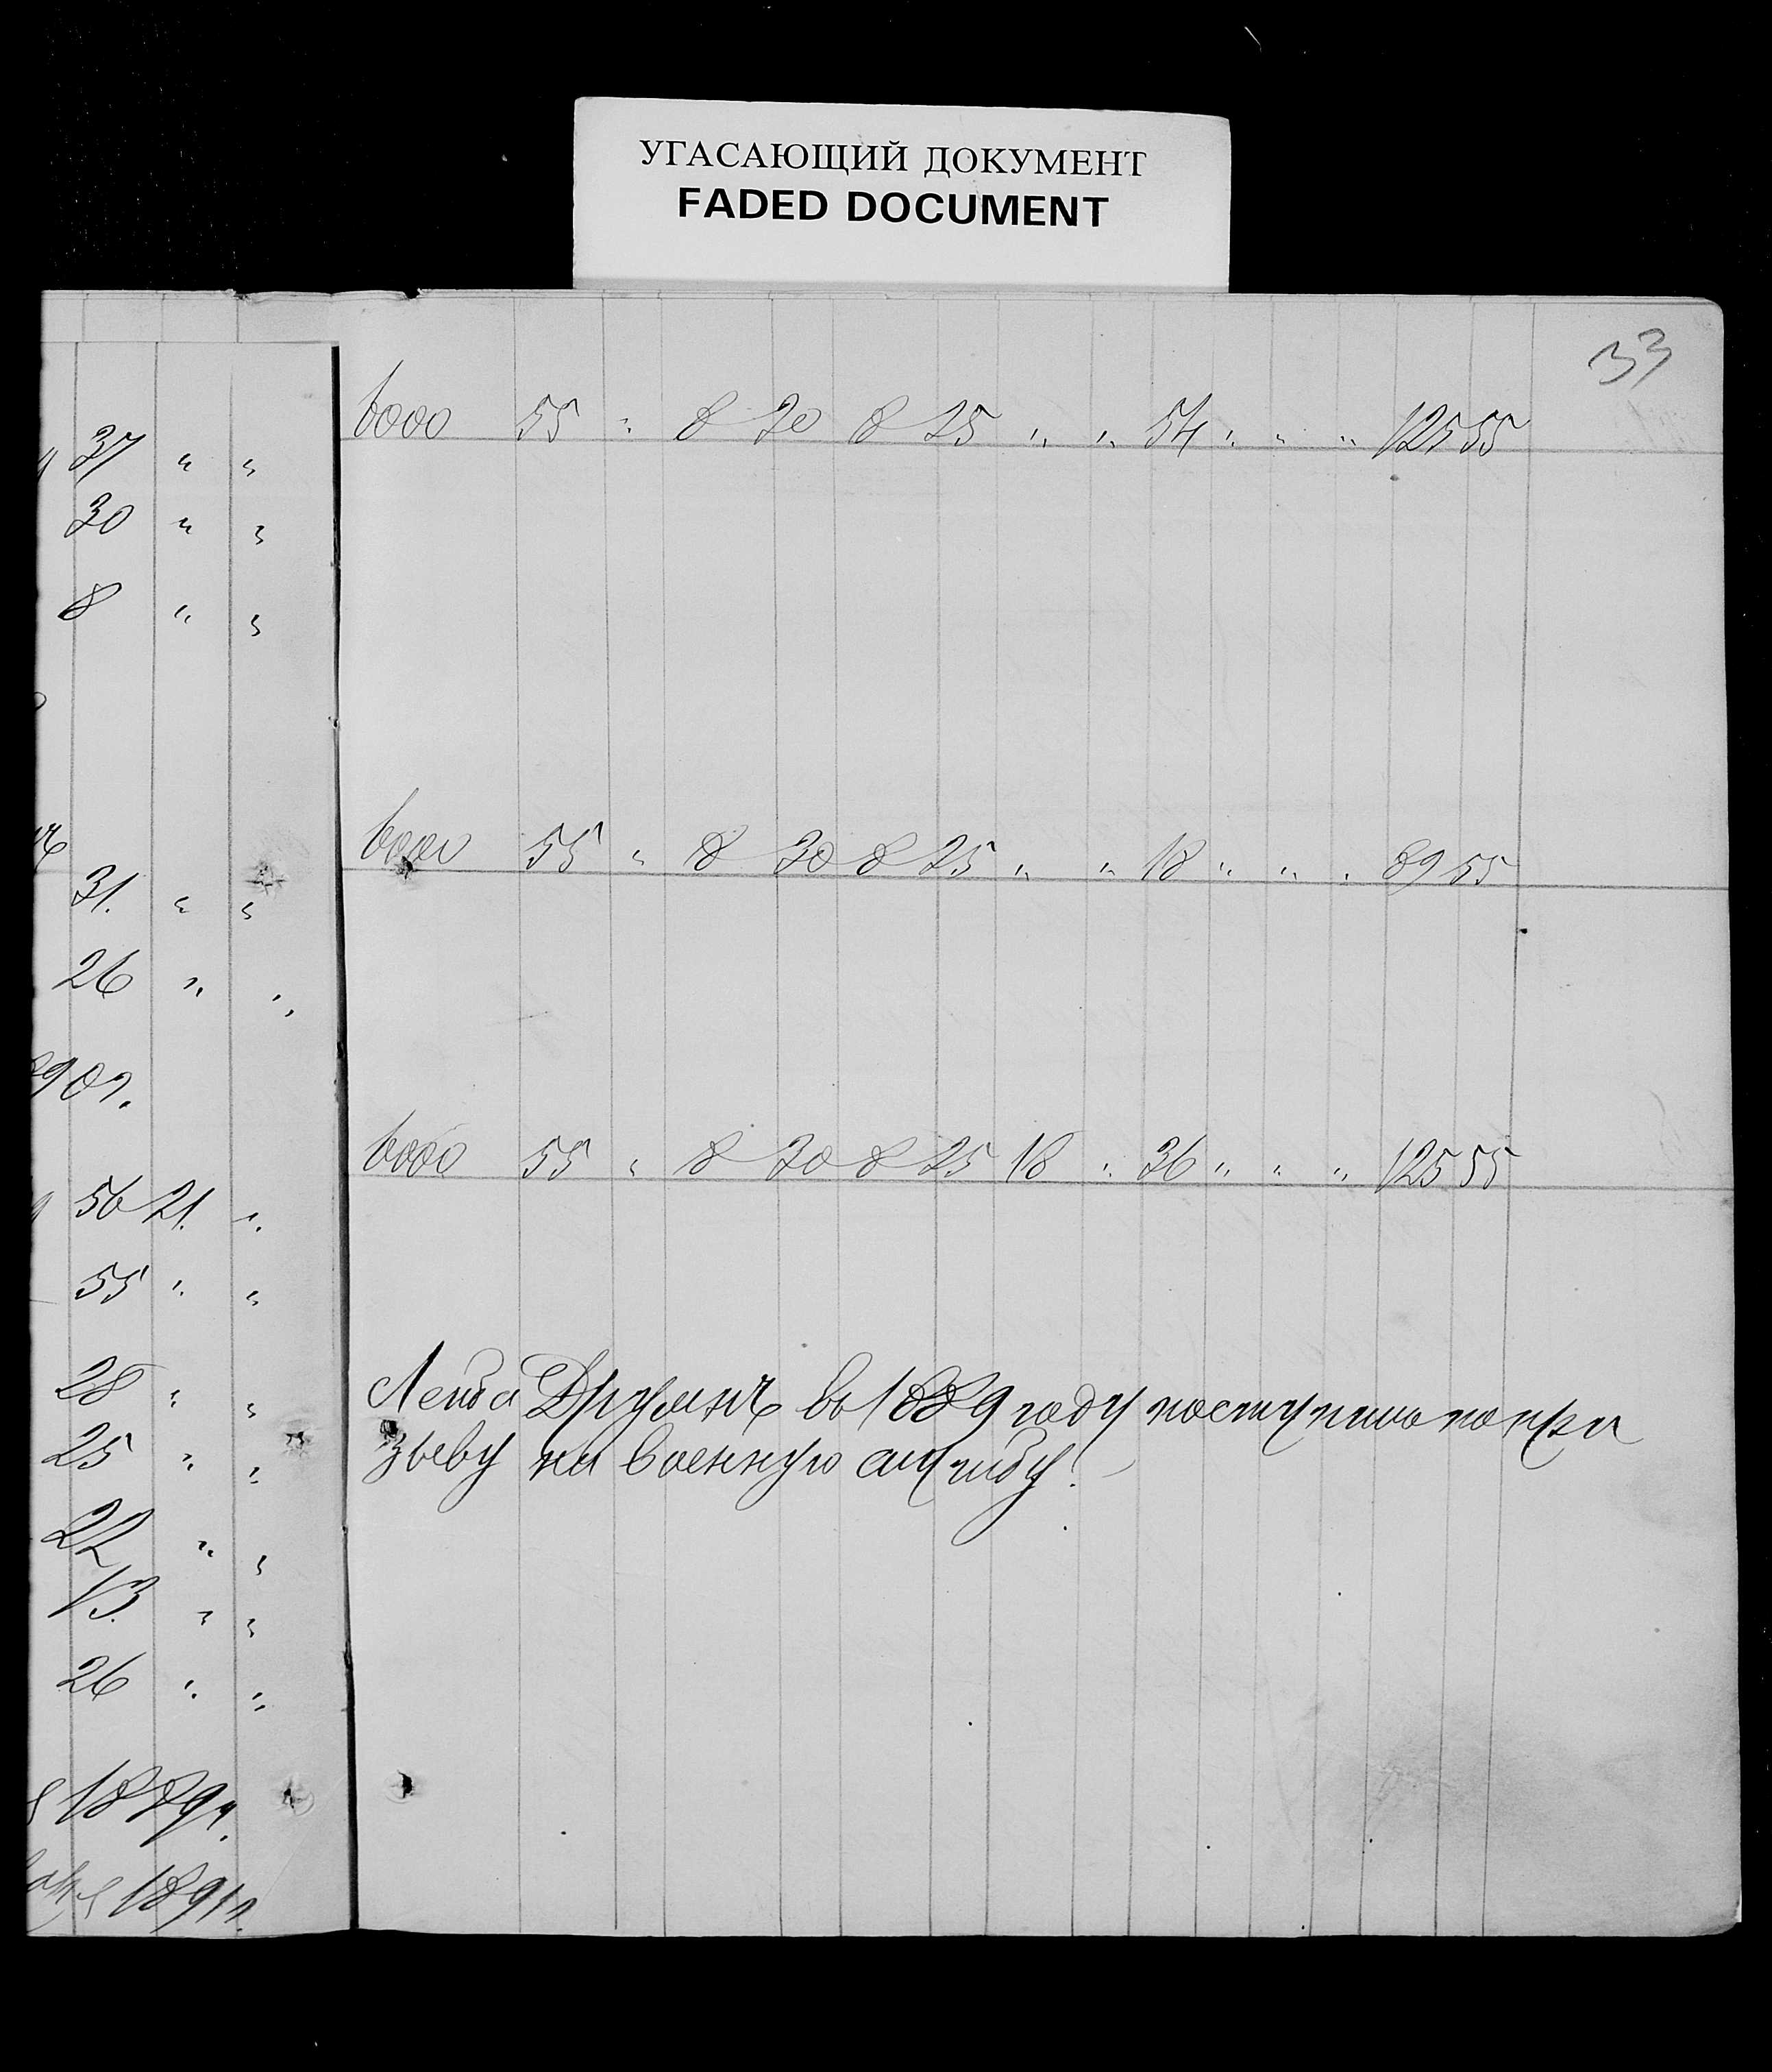 УГАСАЮЩИЙ ДОКУМЕНТ
FADED DOCUMENT
33
37 " "
30 " "
8 " "
31. " "
26 " "
56 21. "
55 " "
28 " "
25 " "
22 " "
13. " "
26 " "
1879 г.
1891 г.
6000 55 " 8 30 8 25 " " 54 " " " 125 55
6000 55 " 8 30 8 25 " " 18 " " " 89 55
6000 55 " 8 30 8 25 18 " 36 " " " 125 55
Лейба въ 1889 году поступилъ по при
зыву на военную службу!